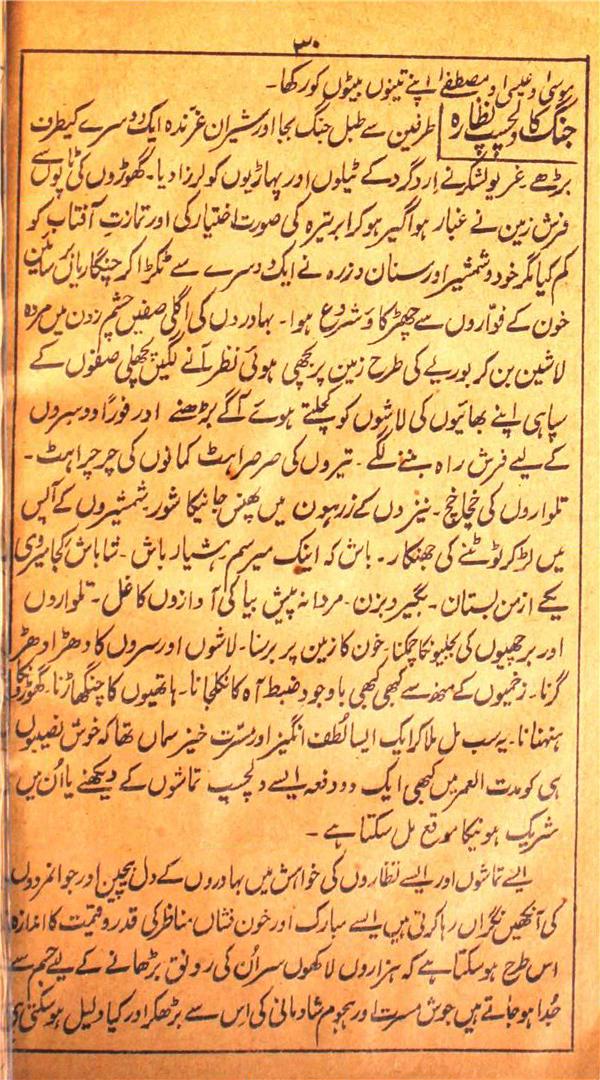 ۳۰
موسیٰ و عیسیٰ و مصطفےٰ اپنے تینوں بیٹوں کو رکھا۔
جنگ کا دلچسپ نظارہ طرفین سے طبل جنگ بجا اور شیران غرندہ ایک دوسرے کیطرف
بڑھے۔ غریو لشکر نے اردگرد کے ٹیلوں اور پہاڑیوں کو لرزا دیا۔ گھوڑوں کی ٹاپوں سے
فرش زمین نے غبار ہوا گیر ہو کر ابر تیرہ کی صورت اختیار کی اور تمازت آفتاب کو
کم کیا مگر خود و شمشیر اور سنان و زرہ نے ایک دوسرے سے ٹکرا کر چنگاریاں برسائیں
خون کے فواروں سے چھڑکاؤ شروع ہوا۔ بہادروں کی اگلی صفیں چشم زدن میں مردہ
لاشیں بن کر بوریے کی طرح زمین پر بچھی ہوئی نظر آنے لگیں پچھلی صفوں کے
سپاہی اپنے بھائیوں کی لاشوں کو کچلتے ہوئے آگے بڑھنے اور فوراً دوسروں
کے لیے فرش راہ بننے لگے۔ تیروں کی صرصراہٹ کمانوں کی چرچراہٹ۔
تلواروں کی خچاخچ۔ نیزوں کے زرہوں میں پھنس جانیکا شور شمشیروں کے آپس
میں لڑ کر ٹوٹنے کی جھنکار۔ باش کہ اینک میرسم ہشیار باش۔ شاباش کجا میروی
یکے از من بستان۔ بگیر و بزن۔ مردانہ پیش بیا کی آوازوں کا غل۔ تلواروں
اور برچھیوں کی بجلیونکا چمکنا۔ خون کا زمین پر برسنا۔ لاشوں اور سروں کا دھڑا دھڑ
گرنا۔ زخمیوں کے منھ سے کبھی کبھی باوجود ضبط آہ کا نکلجانا۔ ہاتھیوں کا چنگھاڑنا۔ گھوڑونکا
ہنہنانا۔ یہ سب مل ملا کر ایک ایسا لُطف انگیز اور مسرت خیز سماں تھا کہ خوش نصیبوں
ہی کو مدت العمر میں کبھی ایک دو دفعہ ایسے دلچسپ تماشوں کے دیکھنے یا اُن میں
شریک ہونیکا موقع مل سکتا ہے۔
ایسے تماشوں اور ایسے نظاروں کی خواہش میں بہادروں کے دل بیچین اور جوانمردوں
کی آنکھیں نگراں رہا کرتی ہیں ایسے مبارک اور خون فشاں مناظر کی قدر و قیمت کا اندازہ
اس طرح ہو سکتا ہے کہ ہزاروں لاکھوں سر اُن کی رونق بڑھانے کے لیے جسم سے
جُدا ہو جاتے ہیں جوش مسرت اور ہجوم شادمانی کی اس سے بڑھکر اور کیا دلیل ہو سکتی ہے